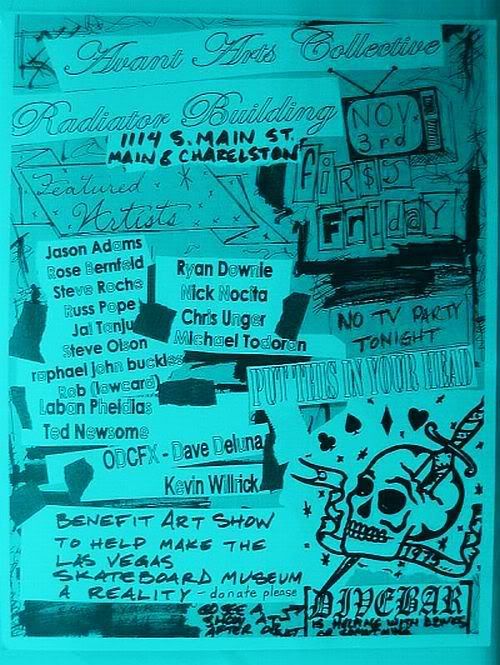 Avant Arts Collective
Radiator Building
1114 S. MAIN ST.
MAIN & CHARELSTON
NOV.
3rd
FiRST
FridaY
Featured
Artists
Jason Adams
Rose Bernfeld
Steve Roche
Russ Pope
Jai Tanju
Steve Olson
raphael john buckles
Rob (loweard)
Laban Pheidias
Ted Newsome
Ryan Downie
Nick Nocita
Chris Unger
Michael Todoran
ODCFX - Dave Deluna
Kevin Willrick
NO TV PARTY
TONIGHT
PUT THIS IN YOUR HEAD
BENEFIT ART SHOW
TO HELP MAKE THE
LAS VEGAS
SKATEBOARD MUSEUM
A REALITY - donate please
GO SEE A
SHOW AT
AFTER
DIVEBAR
IS HELPING WITH DRINKS
OR SOMETHING